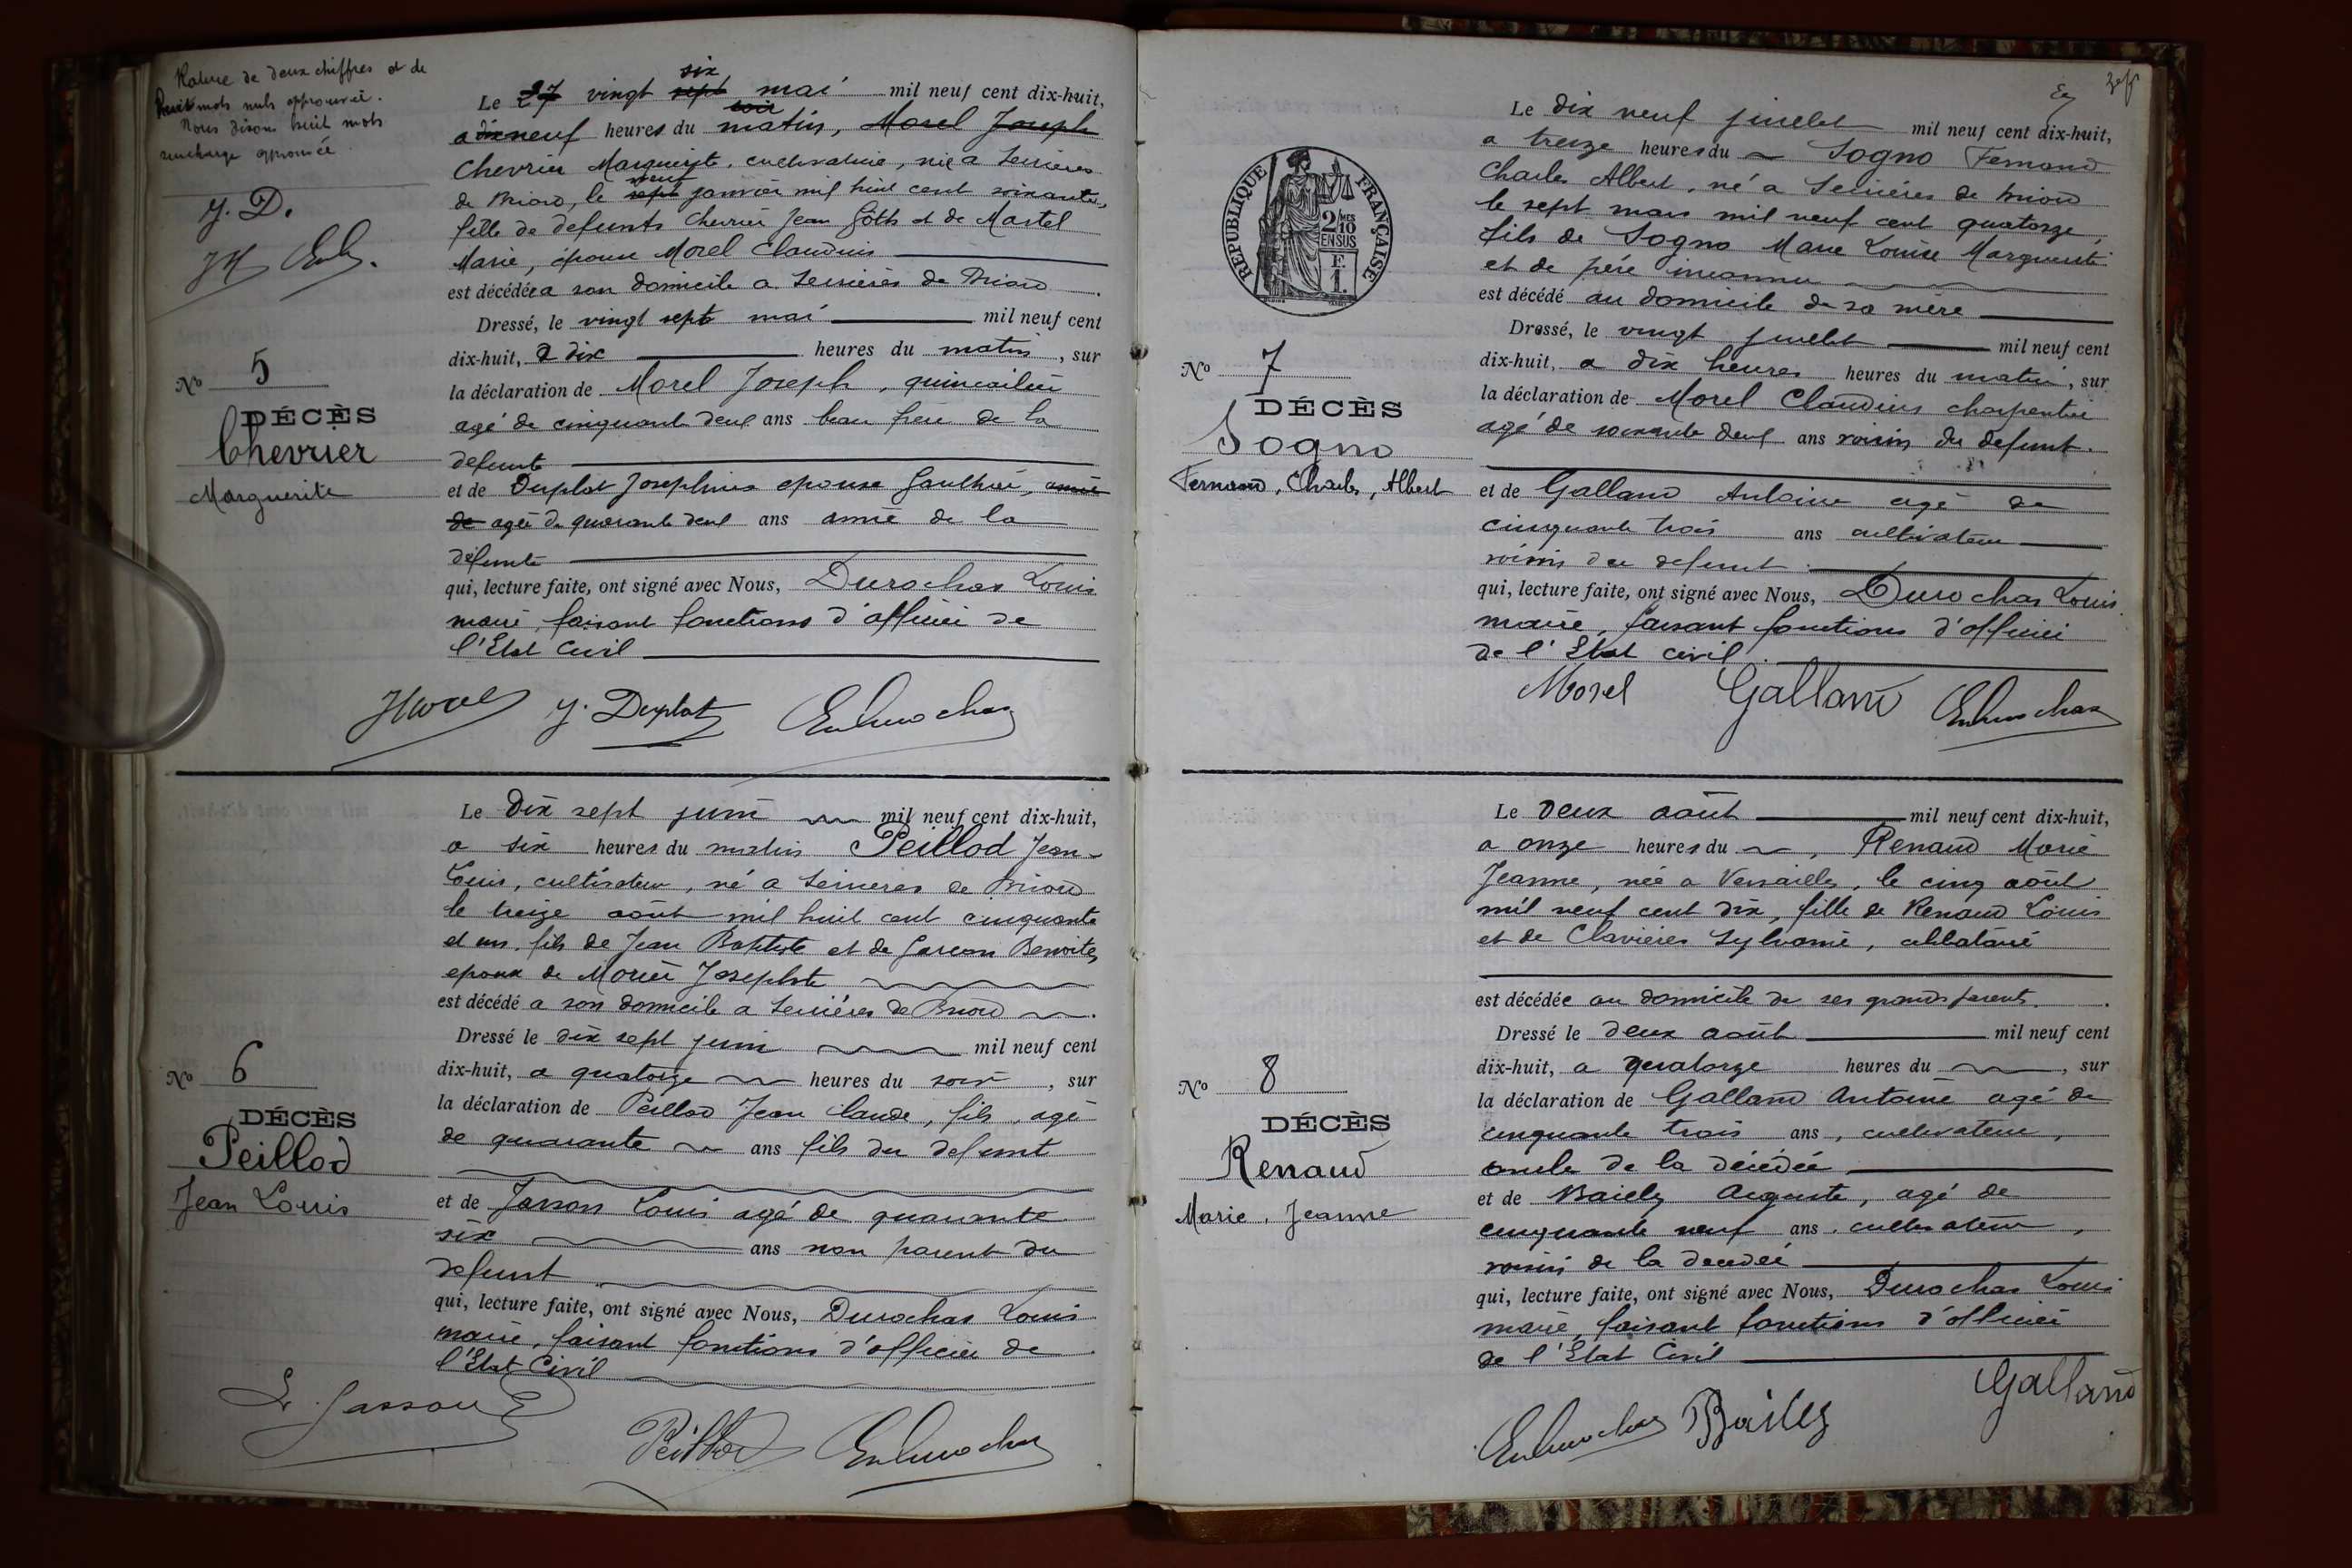 Rature de deux chiffres et de
huit mots nuls approuvée.
Nous disons huit mots
surcharge approuvée
J. D.
N° 5
DÉCÈS
Chevrier
Marguerite
Le 27 vingt sept six mai mil neuf cent dix-huit,
a dix neuf heures du matin soir, Morel Joseph
Chevrier Marguerite, cultivatrice, née a Serrières
de Briord, le sept neuf janvier mil huit cent soixante,
fille de defunts Chevrier Jean Goth et de Martel
Marie, épouse Morel Claudius
est décédée a son domicile a Serrières de Briord.
Dressé, le vingt sept mai mil neuf cent
dix-huit, a dix heures du matin, sur
la déclaration de Morel Joseph, quincailler
agé de cinquante deux ans beau frère de la
defunte
et de Duplat Josephine epouse Gauthier, amie
de agée de quarante deux ans amie de la
défunte
qui, lecture faite, ont signé avec Nous, Durochas Louis
maire, faisant fonctions d'officier de
l'Etat Civil
JMorel J. Duplat Durochas
N° 6
DÉCÈS
Peillod
Jean Louis
Le dix sept juin mil neuf cent dix-huit,
a six heures du matin Peillod Jean
Louis, cultivateur, né a Serrieres de Briord
le treize août mil huit cent cinquante
et un, fils de Jean Baptiste et de Garcon Benoite,
epoux de Morier Josephte
est décédé a son domicile a Serrières de Briord.
Dressé le dix sept juin mil neuf cent
dix-huit, a quatorze heures du soir, sur
la déclaration de Peillod Jean Claude, fils, agé
de quarante ans fils du defunt
et de Jasson Louis agé de quarante
six ans non parent du
defunt
qui, lecture faite, ont signé avec Nous, Durochas Louis
maire, faisant fonctions d'officier de
l'Etat Civil
L. Jasson
Peillod Durochas
RÉPUBLIQUE FRANÇAISE
2/10 MES
EN SUS
F.
1.
N° 7
DÉCÈS
Sogno
Fernand, Charles, Albert
Le dix neuf juillet mil neuf cent dix-huit,
a treize heures du Sogno Fernand
Charles Albert, né a Serrières de Briord
le sept mars mil neuf cent quatorze,
fils de Sogno Marie Louise Marguerite
et de père inconnu
est décédé au domicile de sa mère
Dressé, le vingt juillet mil neuf cent
dix-huit, a dix heures heures du matin, sur
la déclaration de Morel Claudius charpentier
agé de soixante deux ans voisin du defunt.
et de Galland Antoine agé de
cinquante trois ans cultivateur
voisin du defunt.
qui, lecture faite, ont signé avec Nous, Durochas Louis
maire, faisant fonctions d'officier
de l'Etat civil.
Morel Galland Durochas
N° 8
DÉCÈS
Renaud
Marie, Jeanne
Le deux août mil neuf cent dix-huit,
a onze heures du, Renaud Marie
Jeanne, née a Versailles, le cinq août
mil neuf cent dix, fille de Renaud Louis
et de Clavières Sylvanie, celibataire
est décédée au domicile de ses grands parents.
Dressé le deux août mil neuf cent
dix-huit, a quatorze heures du, sur
la déclaration de Galland Antoine agé de
cinquante trois ans, cultivateur,
oncle de la décédée
et de Bailly Auguste, agé de
cinquante neuf ans, cultivateur,
voisin de la decedée
qui, lecture faite, ont signé avec Nous, Durochas Louis
maire, faisant fonctions d'officier
de l'Etat Civil
Durochas Bailly Galland